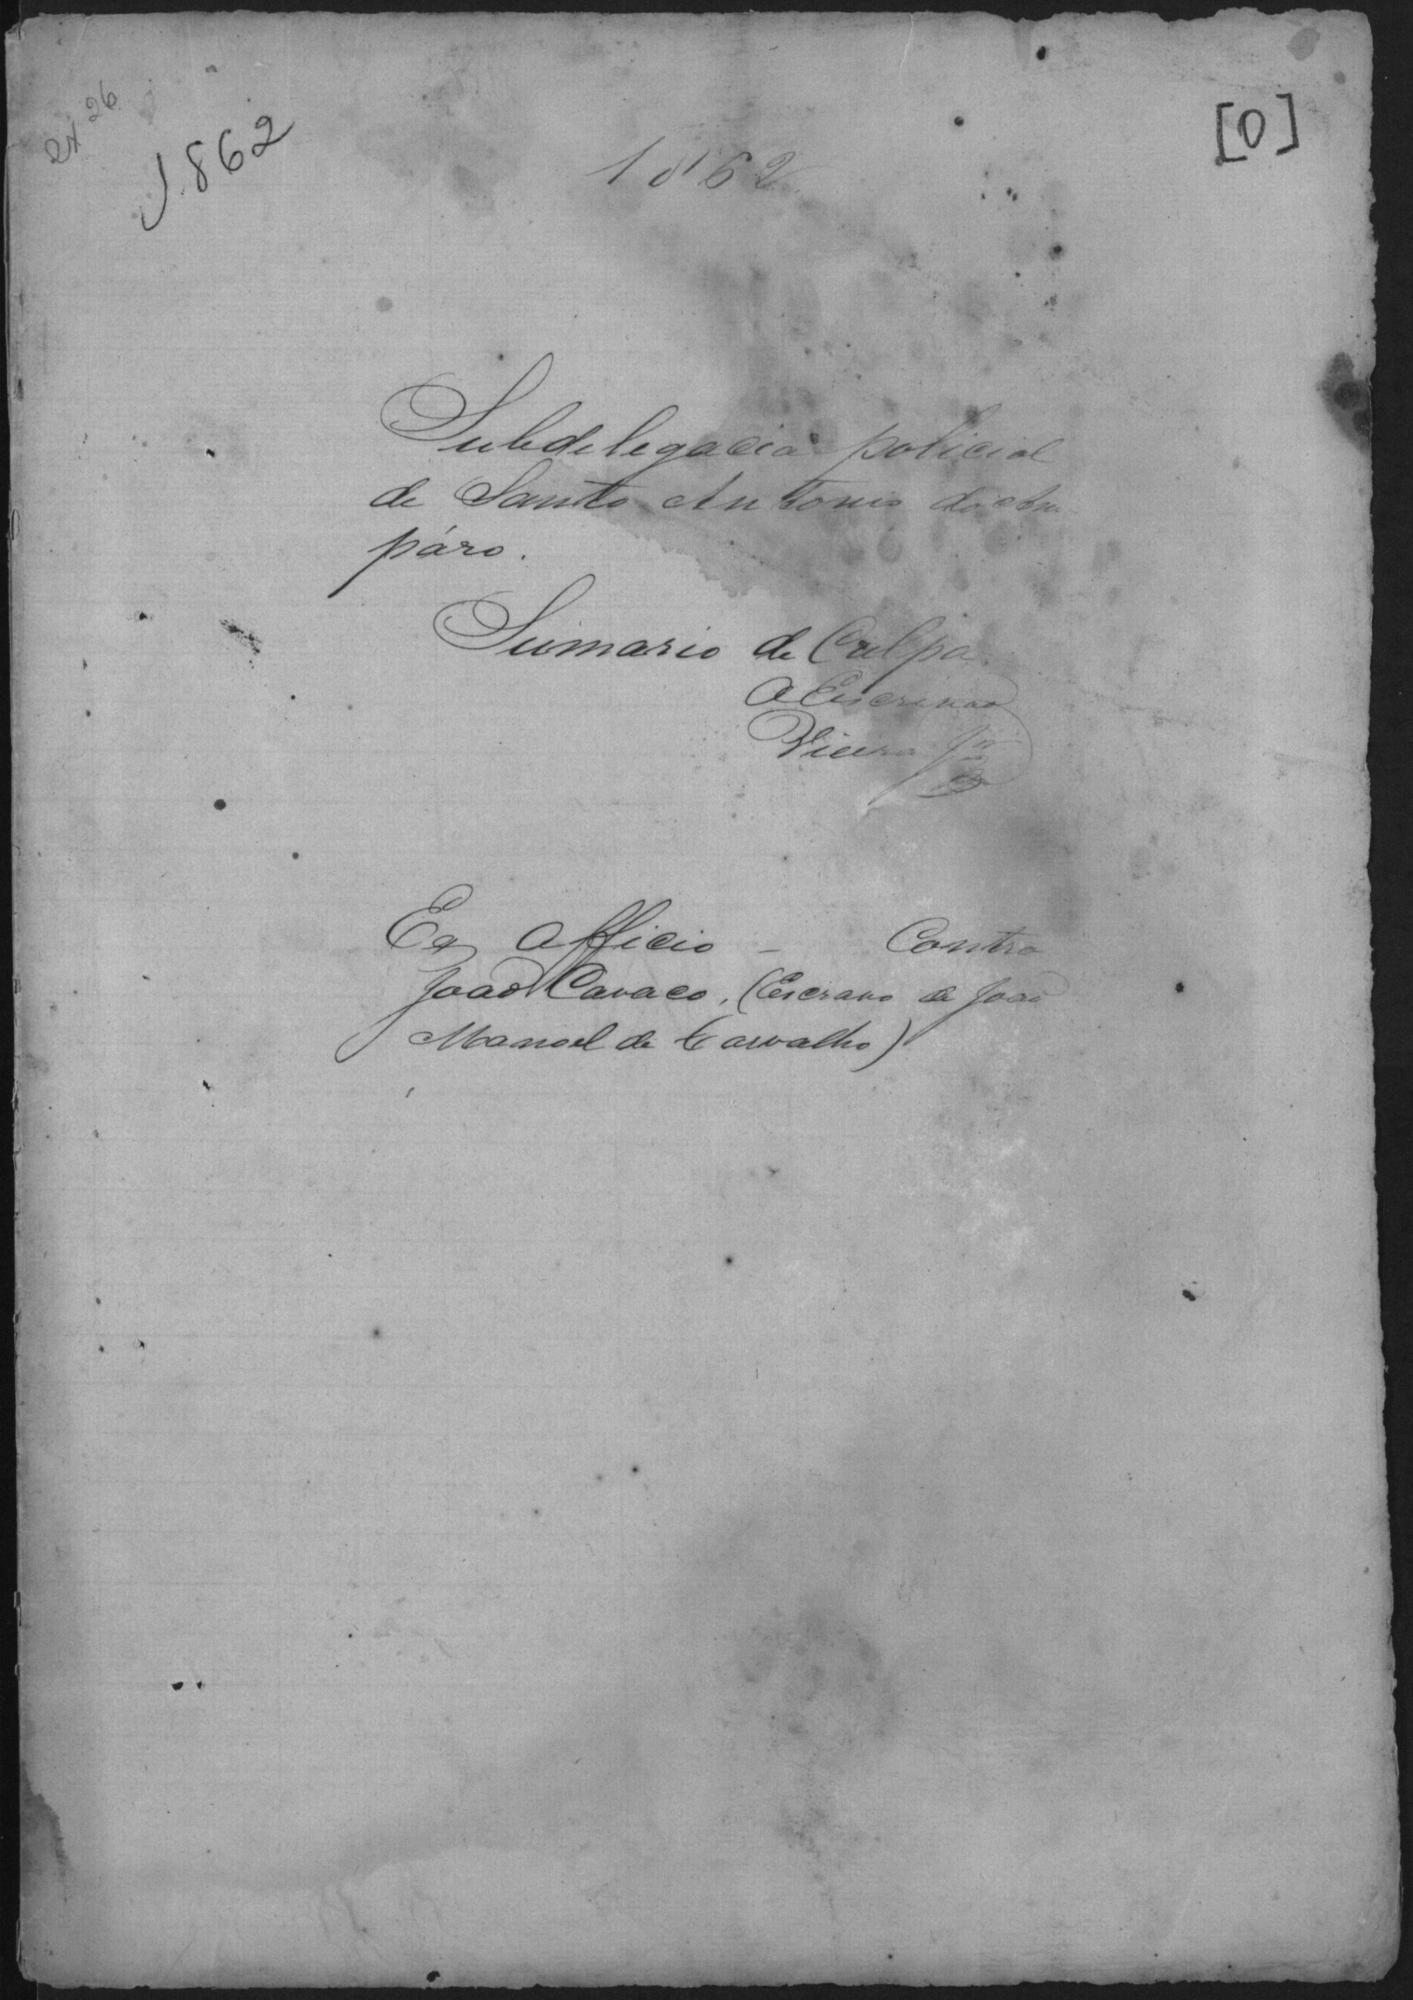 26
1862
[0]
1862
Subdelegacia policial
de Santo Antonio do Am
páro.
Sumario de Culpa
O Escrivão
Vieira Jor
Ex Officio - Contra
João Cavaco, (Escravo de João
Manoel de Carvalho)